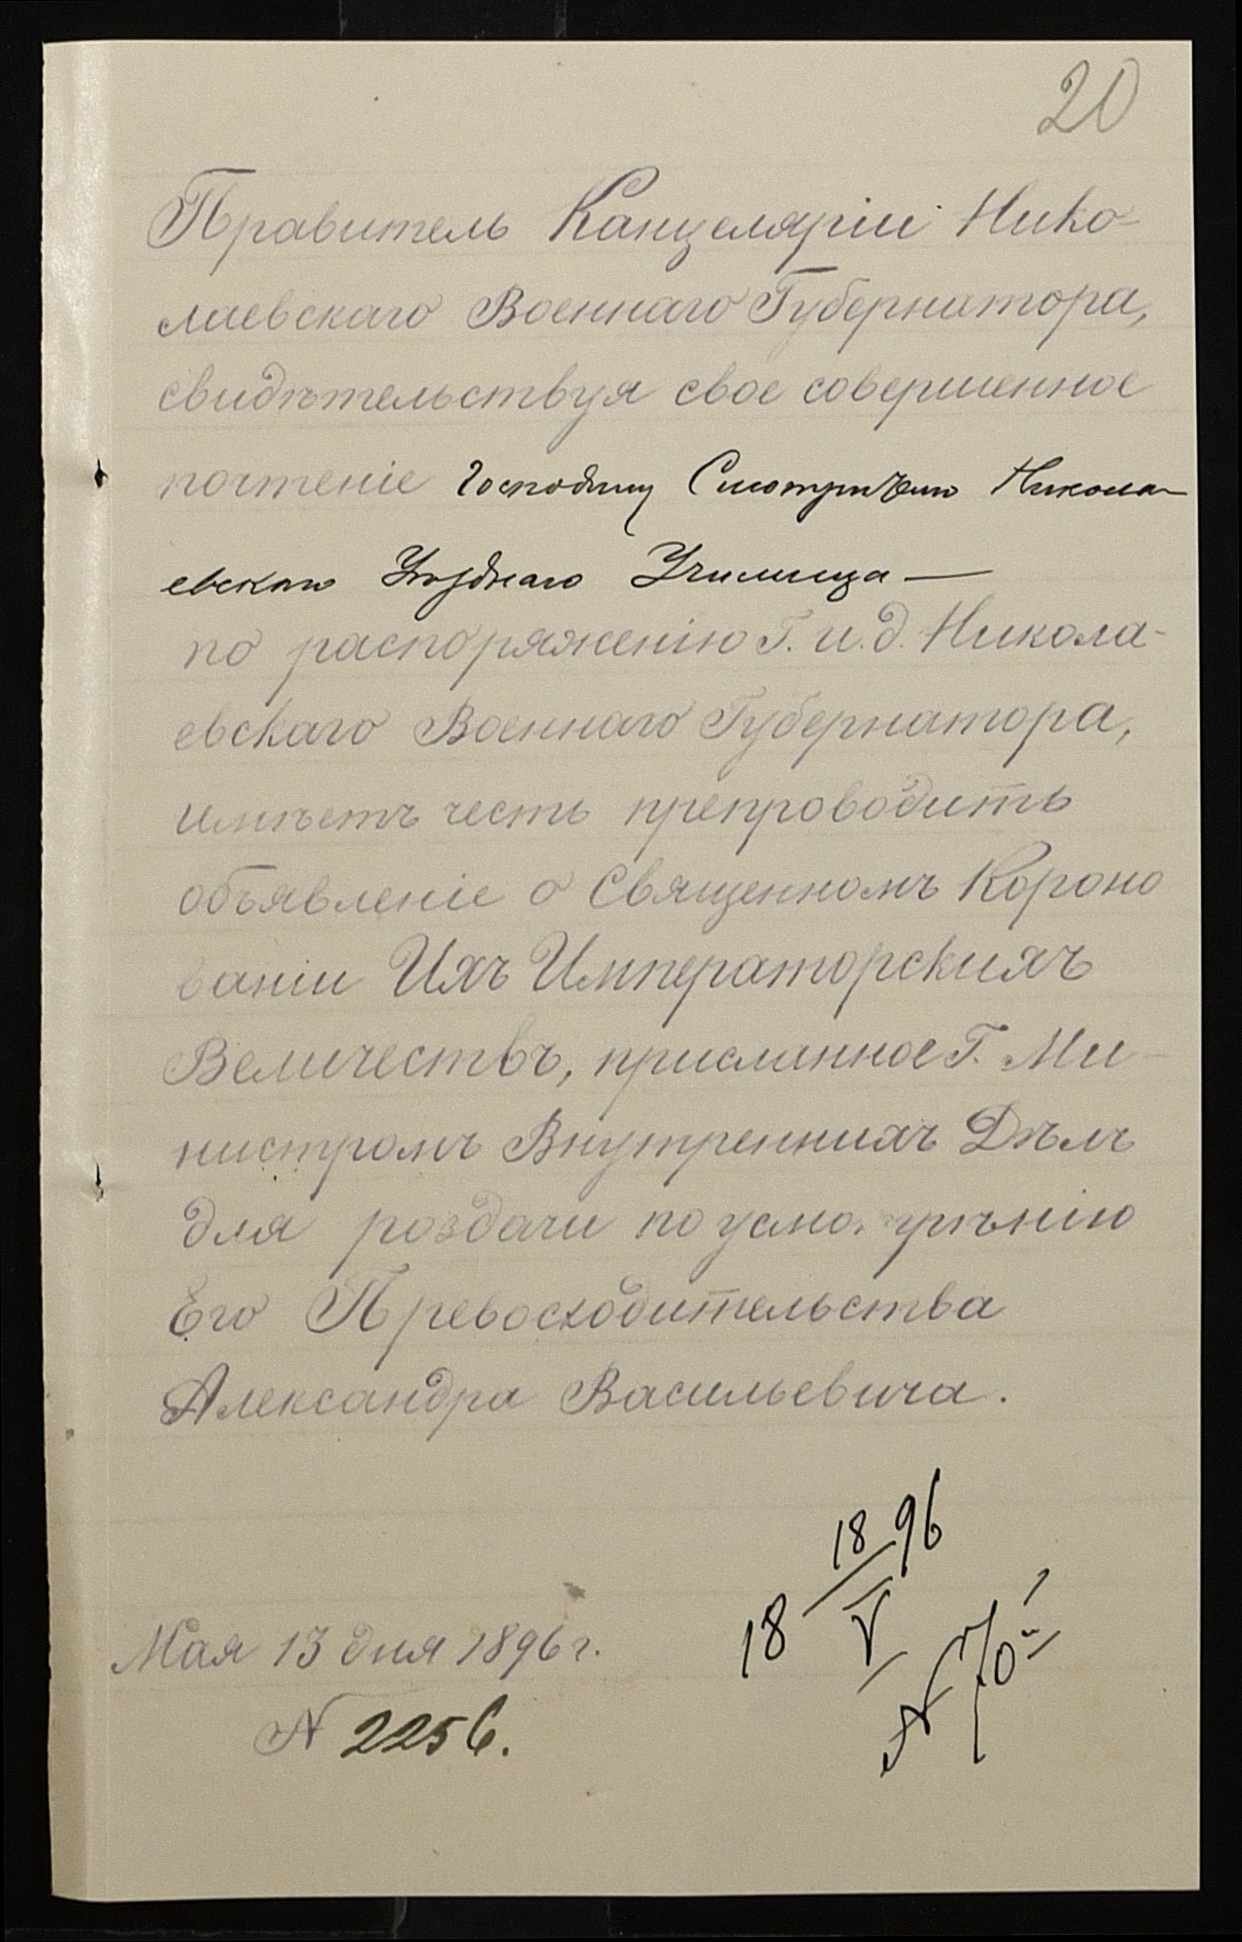 20
Правитель Канцеляріи Нико-
лаевскаго Военнаго Губернатора,
свидѣтельствуя свое совершенное
почтеніе Господину Смотрителю Никола-
евскаго Уѣзднаго Училища —
по распоряженію Г. и. д. Никола-
евскаго Военнаго Губернатора,
имѣетъ честь препроводить
объявленіе о Священномъ Короно
ваніи Ихъ Императорскихъ
Величествъ, присланное Г. Ми-
нистромъ Внутреннихъ Дѣлъ
для роздачи по усмотрѣнію
Его Превосходительства
Александра Васильевича.
18 18/V 96
Мая 13 дня 1896 г.
№ 2256.